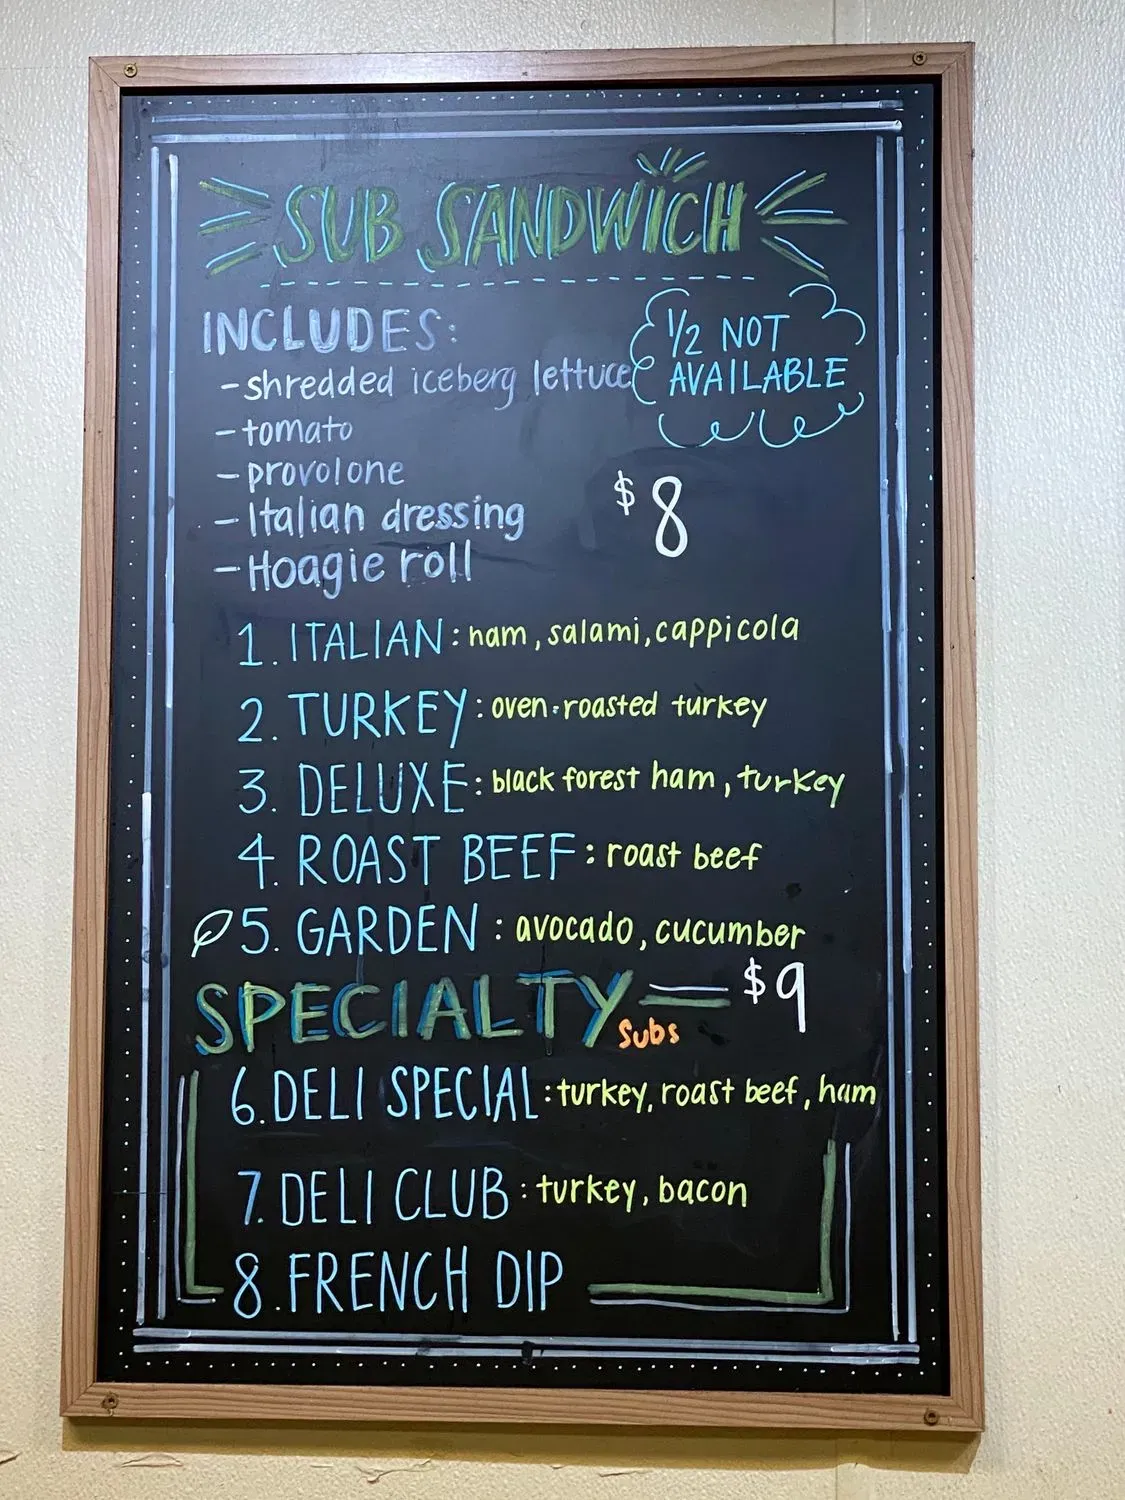 SUB SANDWICH
INCLUDES:
-shredded iceberg lettuce
-tomato
-provolone
-Italian dressing
-Hoagie roll
1/2 NOT
AVAILABLE
$8
1. ITALIAN: ham, salami, cappicola
2. TURKEY: oven-roasted turkey
3. DELUXE: black forest ham, turkey
4. ROAST BEEF: roast beef
5. GARDEN: avocado, cucumber
SPECIALTY Subs — $9
6. DELI SPECIAL: turkey, roast beef, ham
7. DELI CLUB: turkey, bacon
8. FRENCH DIP